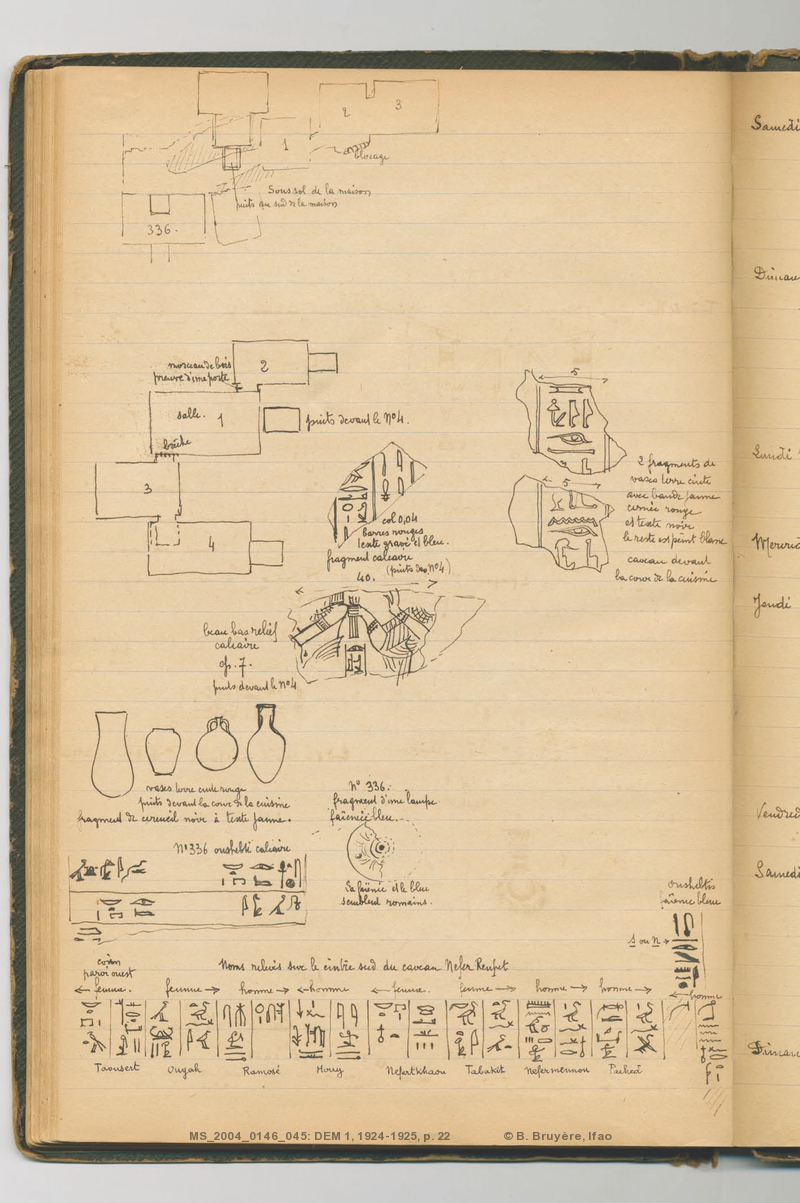 2
3
1
blocage
Sous sol de la maison
puits au sud de la maison
336.
morceau de bois
preuve d'une porte
2
salle. 1
puits devant le N°4.
brèche
3
4
5
5
2 fragments de
vases terre cuite
avec bande jaune
cernée rouge
et texte noir
le reste est peint blanc
caveau devant
la cour de la cuisine
col 0,04
barres rouges
texte gravé et bleu.
fragment calcaire
(puits dev N°4)
40.
beau bas relief
calcaire
ép. 7.
puits devant le N°4
vases terre cuite rouge
puits devant la cour de la cuisine
fragment de cercueil noir à texte jaune.
N° 336.
fragment d'une lampe
faïence bleu.
La faïence et le bleu
semblent romains.
N°336 oushebti calcaire
oushebtis
faïence bleu
s ou n
coin
paroi ouest
Noms relevés sur le cintre sud du caveau Nefer Renpet
← femme. femme → homme → ← homme ← femme. femme → homme → homme → ← homme
Taousert Ouyah Ramosé Houy Nefertkhaou Tabakit Nefermennou Pached
Samedi
Diman
Lundi
Mercre
Jeudi
Vendred
Samedi
Diman
MS_2004_0146_045: DEM 1, 1924-1925, p. 22 © B. Bruyère, Ifao